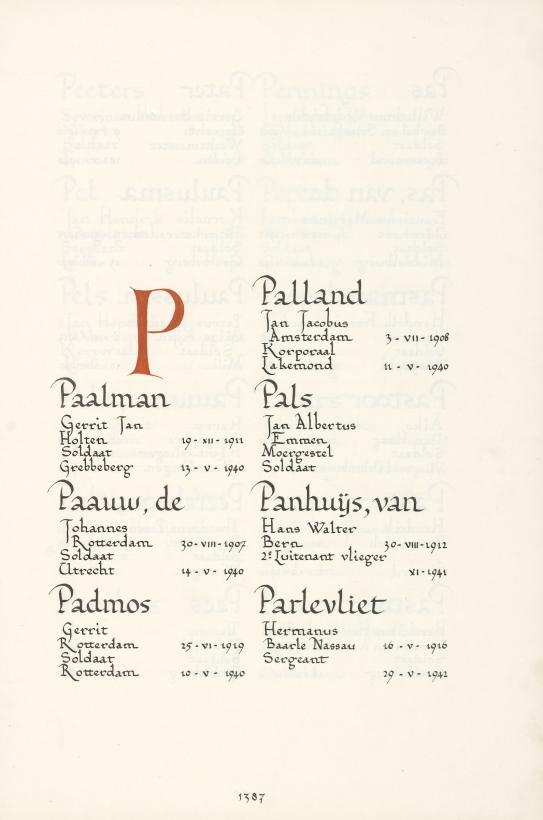 P
Paalman
Gerrit Jan
Holten 19 - XII - 1911
Soldaat
Grebbeberg 13 - V - 1940
Paauw, de
Johannes
Rotterdam 30 - VIII - 1907
Soldaat
Utrecht 14 - V - 1940
Padmos
Gerrit
Rotterdam 25 - VI - 1919
Soldaat
Rotterdam 10 - V - 1940
Palland
Jan Jacobus
Amsterdam 3 - VII - 1908
Korporaal
Lakemond 11 - V - 1940
Pals
Jan Albertus
Emmen
Moergestel
Soldaat
Panhuijs, van
Hans Walter
Bern 30 - VIII - 1912
2e Luitenant vlieger
XI - 1941
Parlevliet
Hermanus
Baarle Nassau 16 - V - 1916
Sergeant
29 - V - 1942
1387